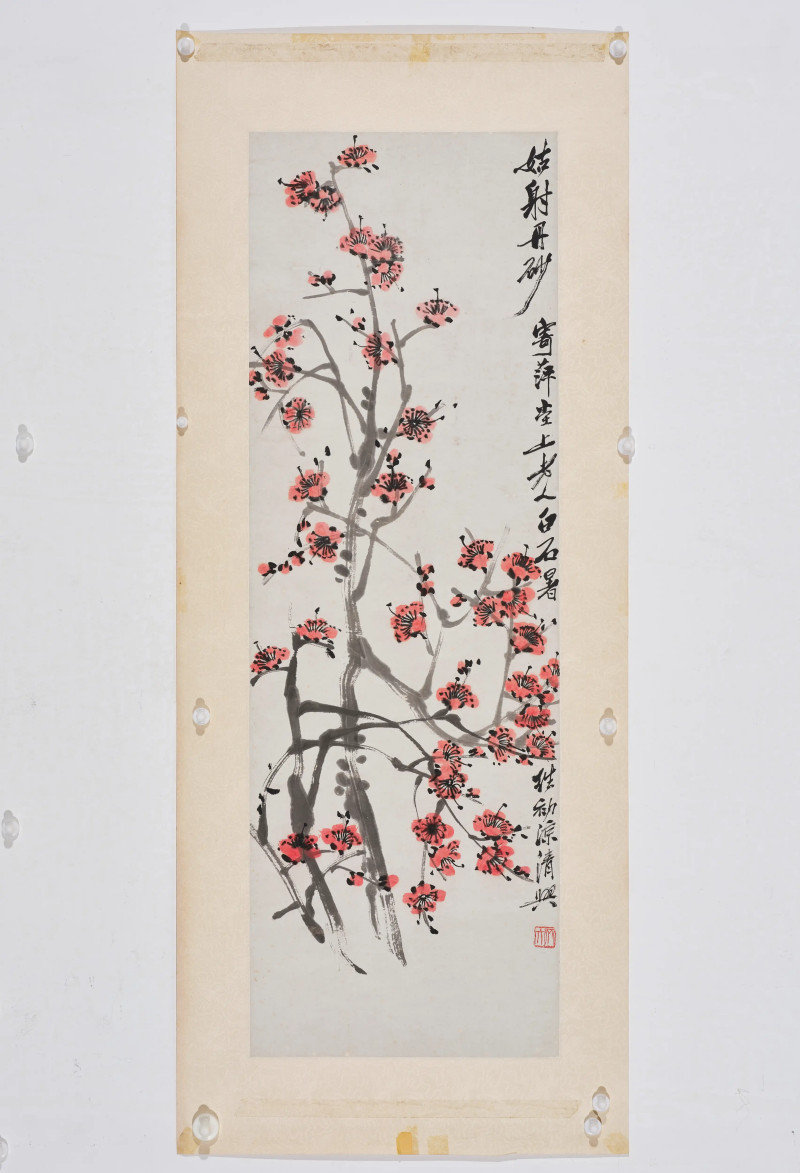 姑射丹砂 寄萍堂上老人白石暑
往初涼清興